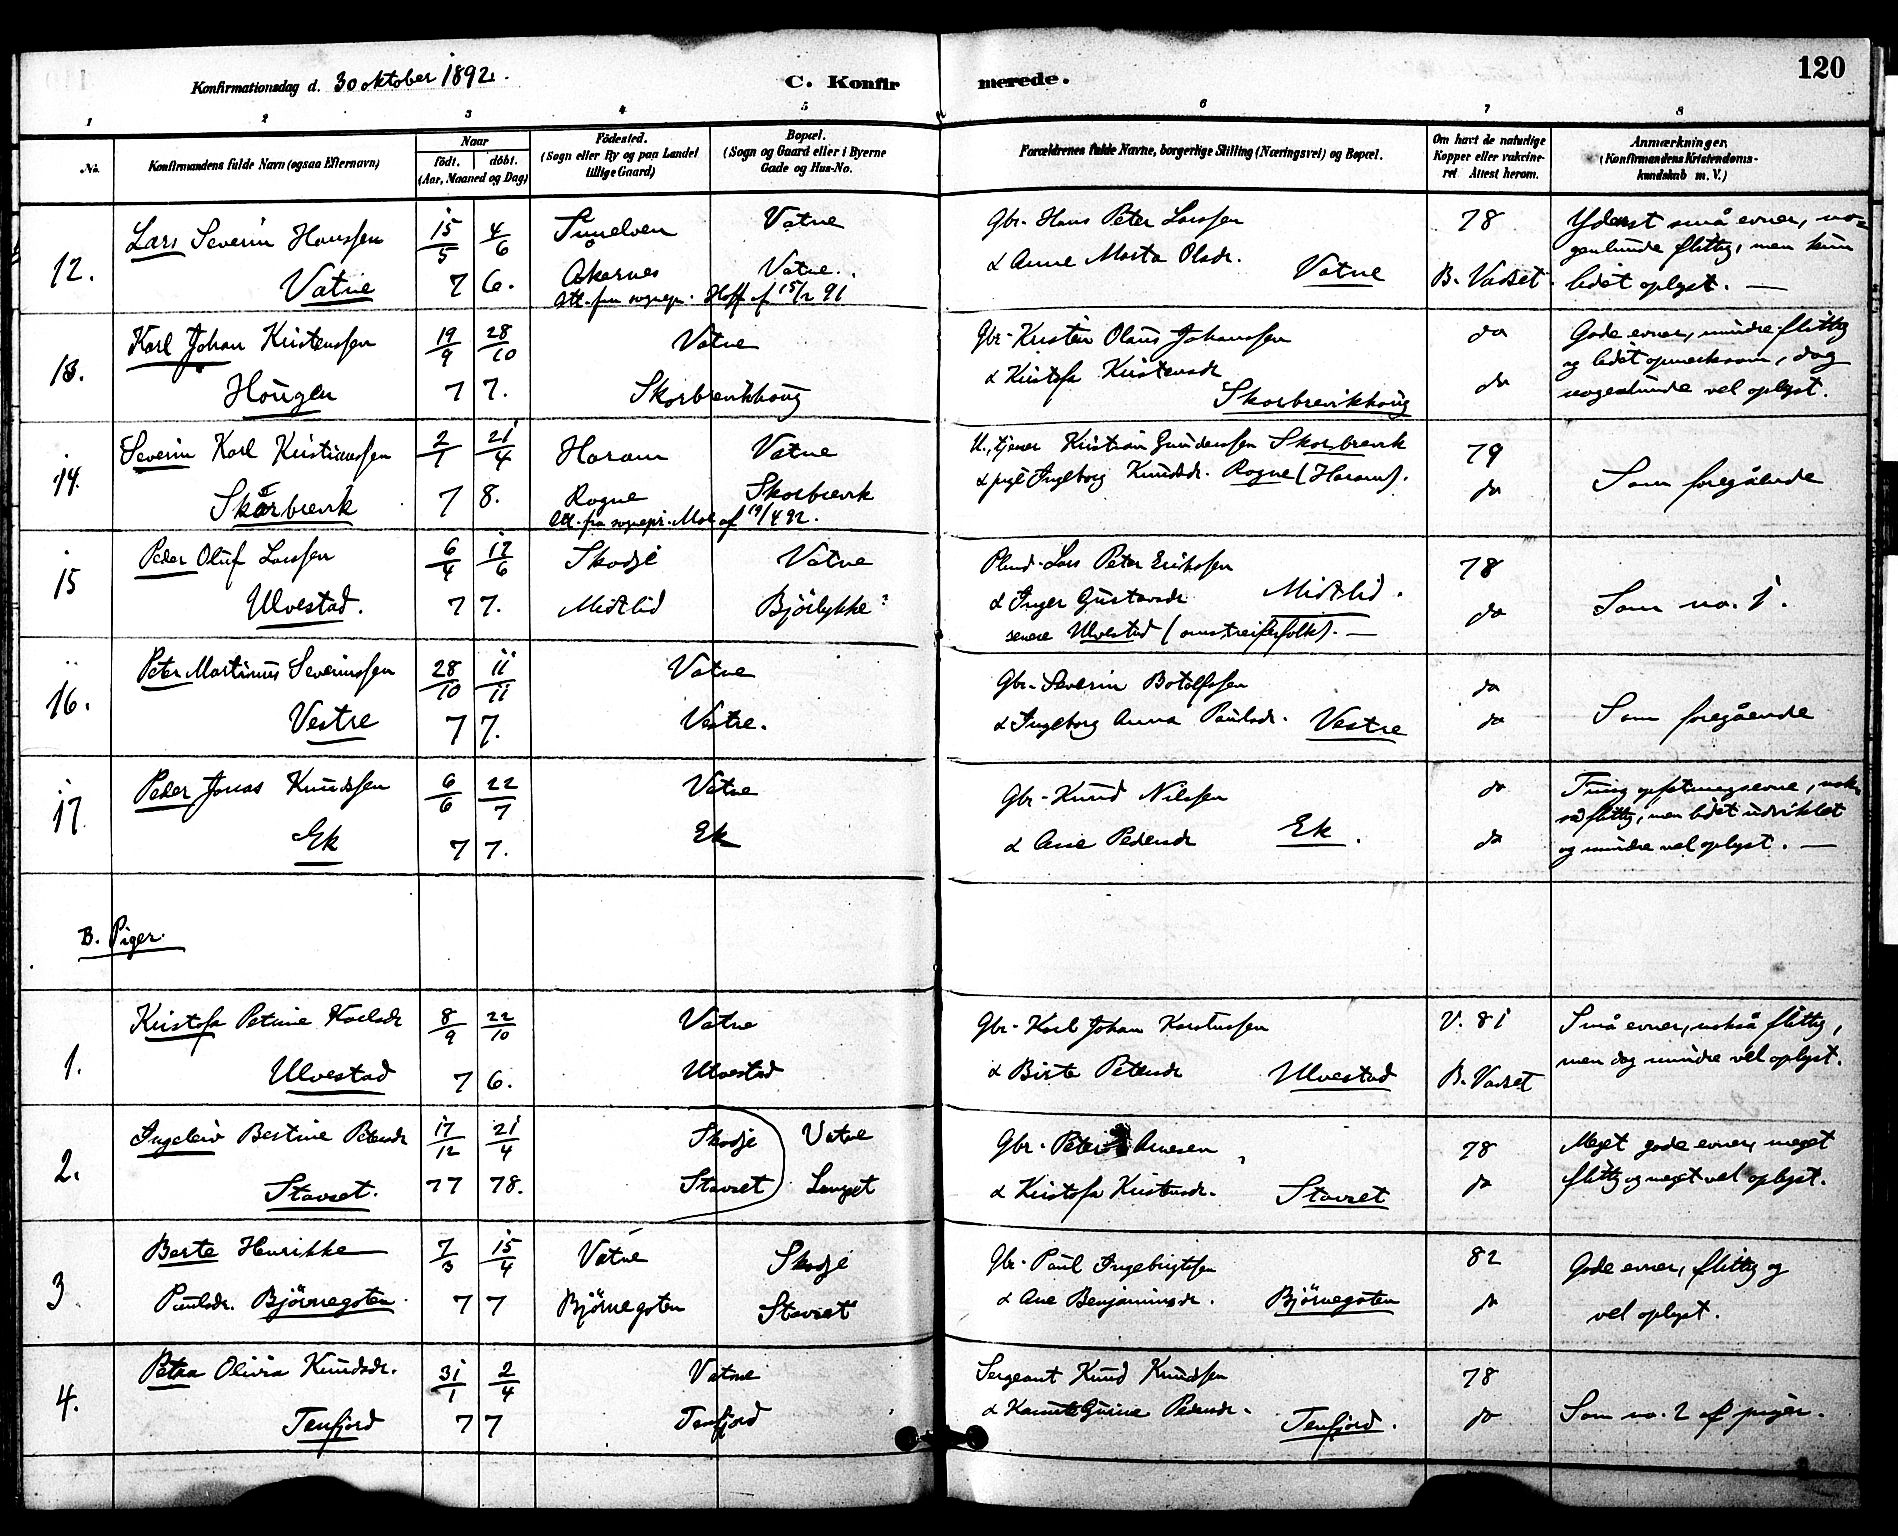 Konfirmationsdag d. 30 oktober 1892. C. Konfirmerede. 120
1 2 3 4 5 6 7 8
No. Konfirmandens fulde Navn (ogsaa Efternavn) Naar födt. döbt. (Aar, Maaned og Dag) Födested. (Sogn eller By og paa Landet tillige Gaard) Bopæl. (Sogn og Gaard eller i Byerne Gade og Hus-No. Forældrenes fulde Navne, borgerlige Stilling (Næringsvei) og Bopæl. Om havt de naturlige Kopper eller vakcineret Attest herom. Anmærkninger. (Konfirmandens Kristendomskundskab m. V.)
12. Lars Severin Hanssen 15/5 4/6 Sunelven Vatne Gbr. Hans Peter Larssen 78 Yderst små evner, no-
Vatne 7 6. Akernes Vatne. & Anne Marta Olsdr. Vatne B. Vadset. genlunde flittig, men kun
Att. fra sognepr. Hoff af 15/2 91 lidet oplyst. —
13. Karl Johan Kristenssen 19/9 28/10 Vatne Gbr. Kristen Olaus Johanssen do Gode evner, mindre flittig
Hougen 7 7. Skorbrevikhoug & Kristofa Kristensdr. Skorbrevikhoug do og lidet opmerksom, dog
nogenlunde vel oplyst.
14. Severin Karl Kristianssen 2/1 21/4 Haram Vatne U., tjener Kristian Gunderssen Skorbrevik 79 Som foregående
Skorbrevik 7 8. Rogne Skorbrevik & pige Ingeborg Knudsdr. Rogne (Haram). do
Att. fra sognepr. Moe af 19/4 92.
15 Peder Oluf Larssen 6/4 17/6 Skodje Vatne Plmd. Lars Peter Erikssen 78
Ulvestad. 7 7. Midtlid Bjørlykke? & Inger Gustavsdr. Midtlid. do Som no. 1.
senere Ulvestad (omstreiferfolk). —
16. Peter Martinus Severinssen 28/10 11/11 Vatne Gbr. Severin Botolfssen do Som foregående
Vestre 7 7. Vestre. & Ingeborg Anna Paulsdr. Vestre do
17. Peder Jonas Knudssen 6/6 22/7 Vatne Gbr. Knud Nilssen do Tung opfatningsevne, nok-
Ek 7 7. Ek & Ane Pedersdr. Ek. do så flittig, men lidet udviklet
og mindre vel oplyst. —
B. Piger.
1. Kristofa Petrine Karlsdr 8/9 22/10 Vatne Gbr. Karl Johan Karstenssen V. 81 Små evner, nokså flittig,
Ulvestad 7 6. Ulvestad & Birte Petersdr Ulvestad B. Vadset men dog mindre vel oplyst.
2. Bestine Petersdr 17/12 21/4 Skodje Vatne Gbr. Peter Arnesen 78 Meget gode evner, meget
Stavset. 77 78. Stavset Langset & Kristofa Kristensdr. Stavset do flittig og meget vel oplyst.
3. Berte Henrikke 7/3 15/4 Vatne Skodje Gbr. Paul Ingebrigtsen 82 Gode evner, flittig og
Paulsdr. Bjørnegoten 7 7 Bjørnegoten Stavset & Ane Benjaminsdr. Bjørnegoten do vel oplyst.
4. Petra Olivia Knudsdr. 31/1 2/4 Vatne Sergeant Knud Knudssen 78
Tenfjord 7 7 Tenfjord & Gurine Pedersdr. Tenfjord. do Som no. 2 af piger.